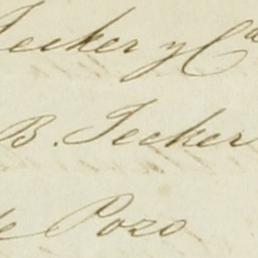 Tecker y Ca
B. Tecker
de Pozo